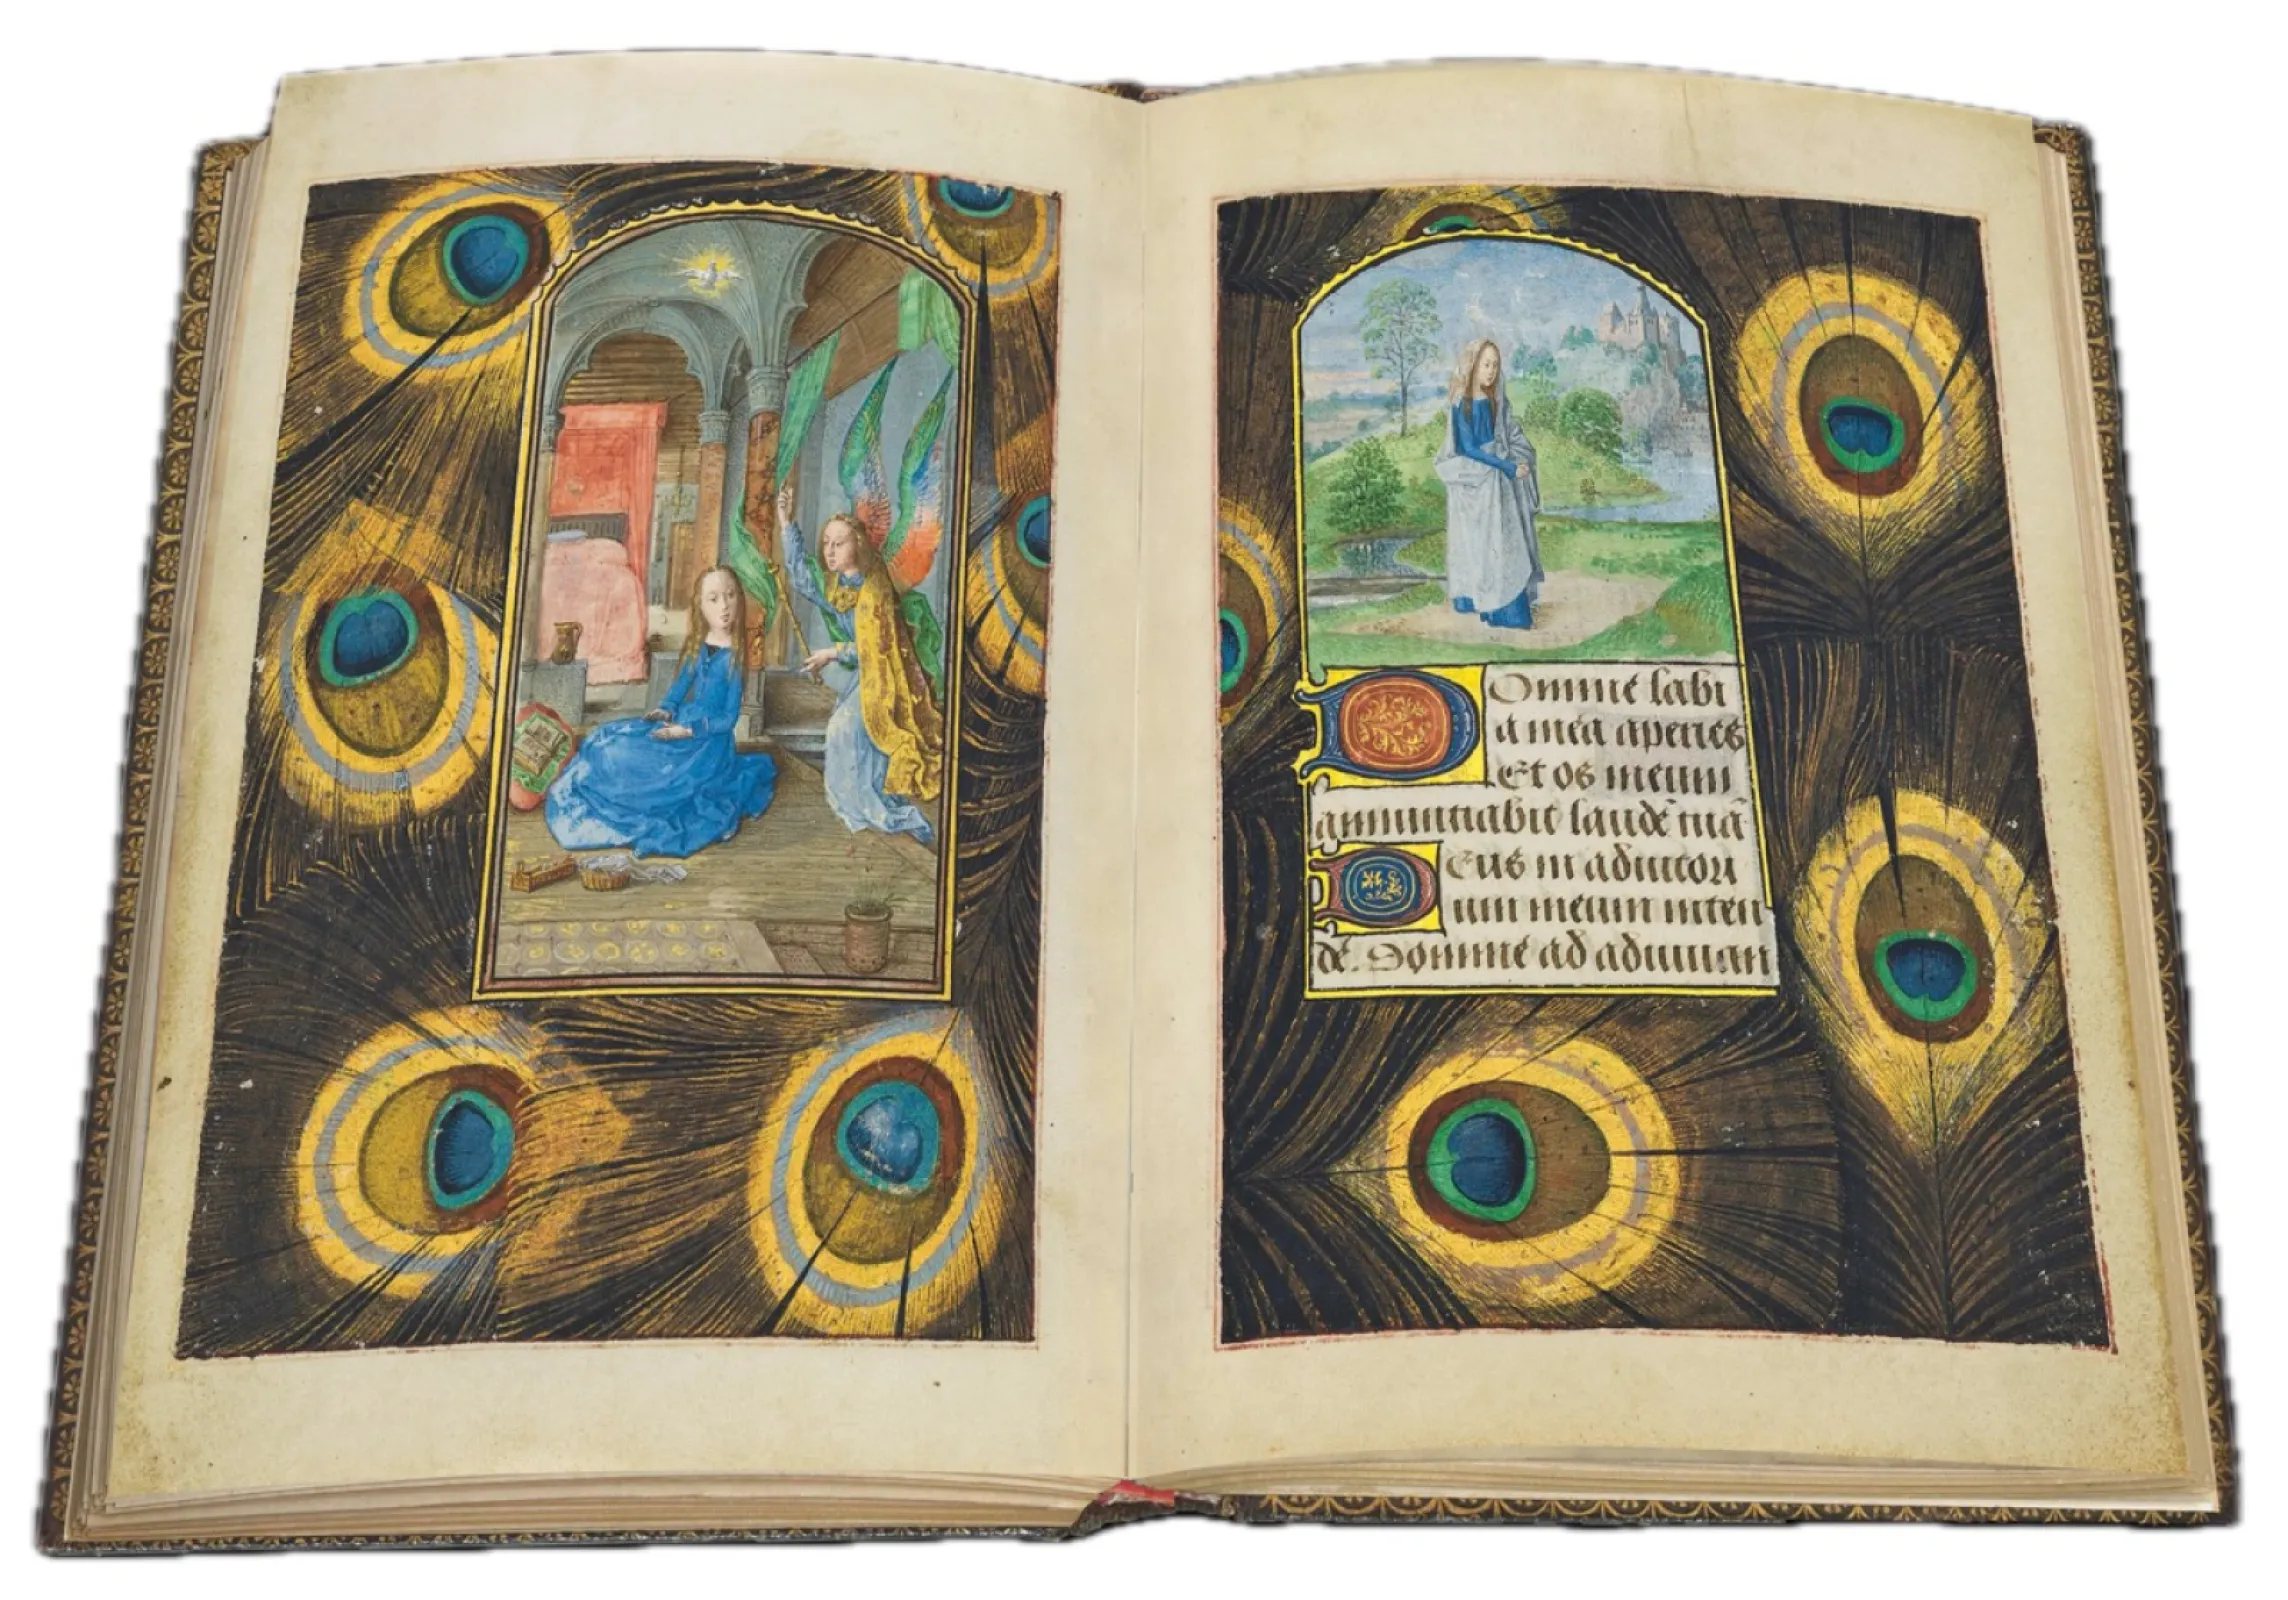 DOmine labi
a mea aperies
Et os meum
annuntiabit laudē tuā
DEus in adiutori
um meum inten
de. Domine ad adiuuan